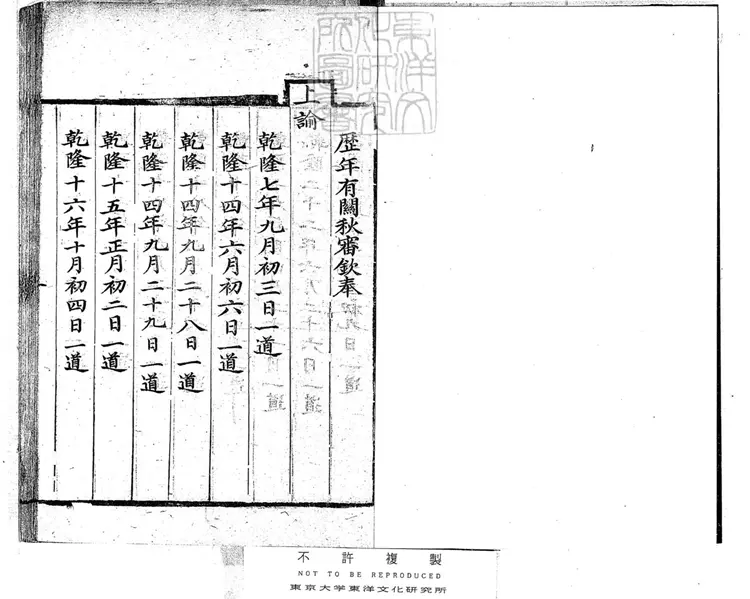 歷年有關秋審欽奉
上諭
乾隆七年九月初三日一道
乾隆十四年六月初六日一道
乾隆十四年九月二十八日一道
乾隆十四年九月二十九日一道
乾隆十五年正月初二日一道
乾隆十六年十月初四日一道
東洋文
化研究
所圖書
不許複製
NOT TO BE REPRODUCED
東京大学東洋文化研究所